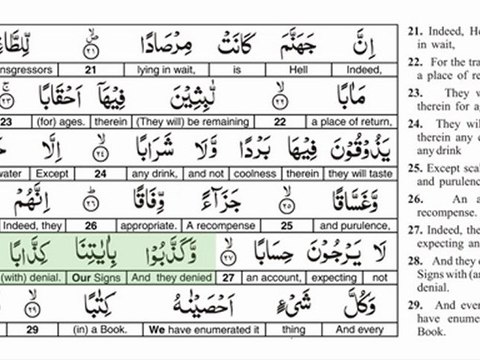 إِنَّ جَهَنَّمَ كَانَتْ مِرْصَادًا ﴿٢١﴾ لِّلطَّا
Indeed, Hell is lying in wait, 21 nsgressors
مَاٰبًا ﴿٢٢﴾ لّٰبِثِيْنَ فِيْهَآ اَحْقَابًا ﴿٢٣﴾
a place of return, 22 (They will) be remaining therein (for) ages. 23
يَذُوْقُوْنَ فِيْهَا بَرْدًا وَّلَا شَرَابًا ﴿٢٤﴾ اِلَّا
they will taste therein coolness and not any drink, 24 Except water
وَّغَسَّاقًا ﴿٢٥﴾ جَزَآءً وِّفَاقًا ﴿٢٦﴾ اِنَّهُمْ
and purulence, 25 A recompense appropriate. 26 Indeed, they
لَا يَرْجُوْنَ حِسَابًا ﴿٢٧﴾ وَّكَذَّبُوْا بِاٰيٰتِنَا كِذَّابًا
not expecting an account, 27 And they denied Our Signs (with) denial.
وَكُلَّ شَيْءٍ اَحْصَيْنٰهُ كِتٰبًا ﴿٢٩﴾
And every thing We have enumerated it (in) a Book. 29
21. Indeed, He
in wait,
22. For the tra
a place of re
23. They w
therein for ag
24. They wil
therein any c
any drink
25. Except scal
and purulenc
26. An a
recompense.
27. Indeed, the
expecting an
28. And they d
Signs with (an
denial.
29. And ever
have enume
Book.